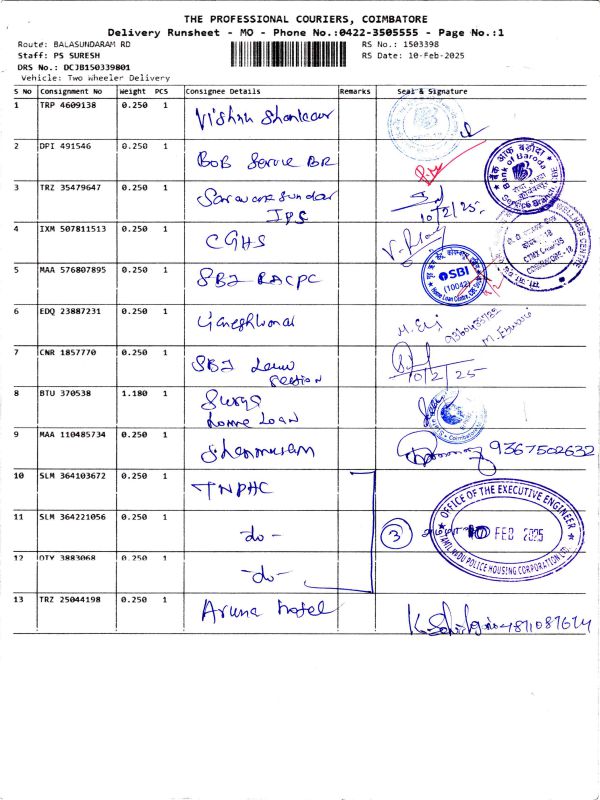 THE PROFESSIONAL COURIERS, COIMBATORE
Delivery Runsheet - MO - Phone No.:0422-3505555 - Page No.:1
Route: BALASUNDARAM RD
RS No.: 1503398
Staff: PS SURESH
RS Date: 10-Feb-2025
DRS No.: DCJB150339801
Vehicle: Two Wheeler Delivery
S No Consignment No Weight PCS Consignee Details Remarks Seal & Signature
1 TRP 4609138 0.250 1 Vishnu Shankar
2 DPI 491546 0.250 1 BOB Service BR
बैंक ऑफ़ बड़ौदा
Bank of Baroda
Service Branch
3 TRZ 35479647 0.250 1 Saravanasundar
IPS
10/2/25
4 IXM 507811513 0.250 1 CGHS
WELLNESS CENTRE
COIMBATORE - 18
5 MAA 576807895 0.250 1 SBI RACPC
SBI
(10042)
6 EDQ 23887231 0.250 1 Ganeshkumar
7 CNR 1857770 0.250 1 SBI
Section
10/2/25
8 BTU 370538 1.180 1 Surya
Home Loan
Coimbatore
9 MAA 110485734 0.250 1 Shanmugam
9367502632
10 SLM 364103672 0.250 1 TNPHC
11 SLM 364221056 0.250 1 -do-
3
OFFICE OF THE EXECUTIVE ENGINEER
10 FEB 2025
TAMILNADU POLICE HOUSING CORPORATION LTD.
12 QTY 3883068 0.250 1 -do-
13 TRZ 25044198 0.250 1 Aruna hotel